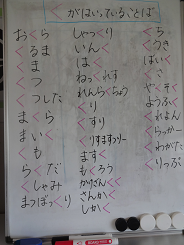 く がはいっていることば
おくら
くるま
くま
くつ
くつした
まくら
まいく
くも
らくだ
くしゃみ
まつぼっくり
しゃっくり
いんく
はく
ねっくれす
れんらくちょう
くり
くすり
くりすますつりー
ますく
さんかく
しかく
くち
ばいく
くさ
やくそく
ようふく
くれよん
くらっかー
くわがた
くりっぷ